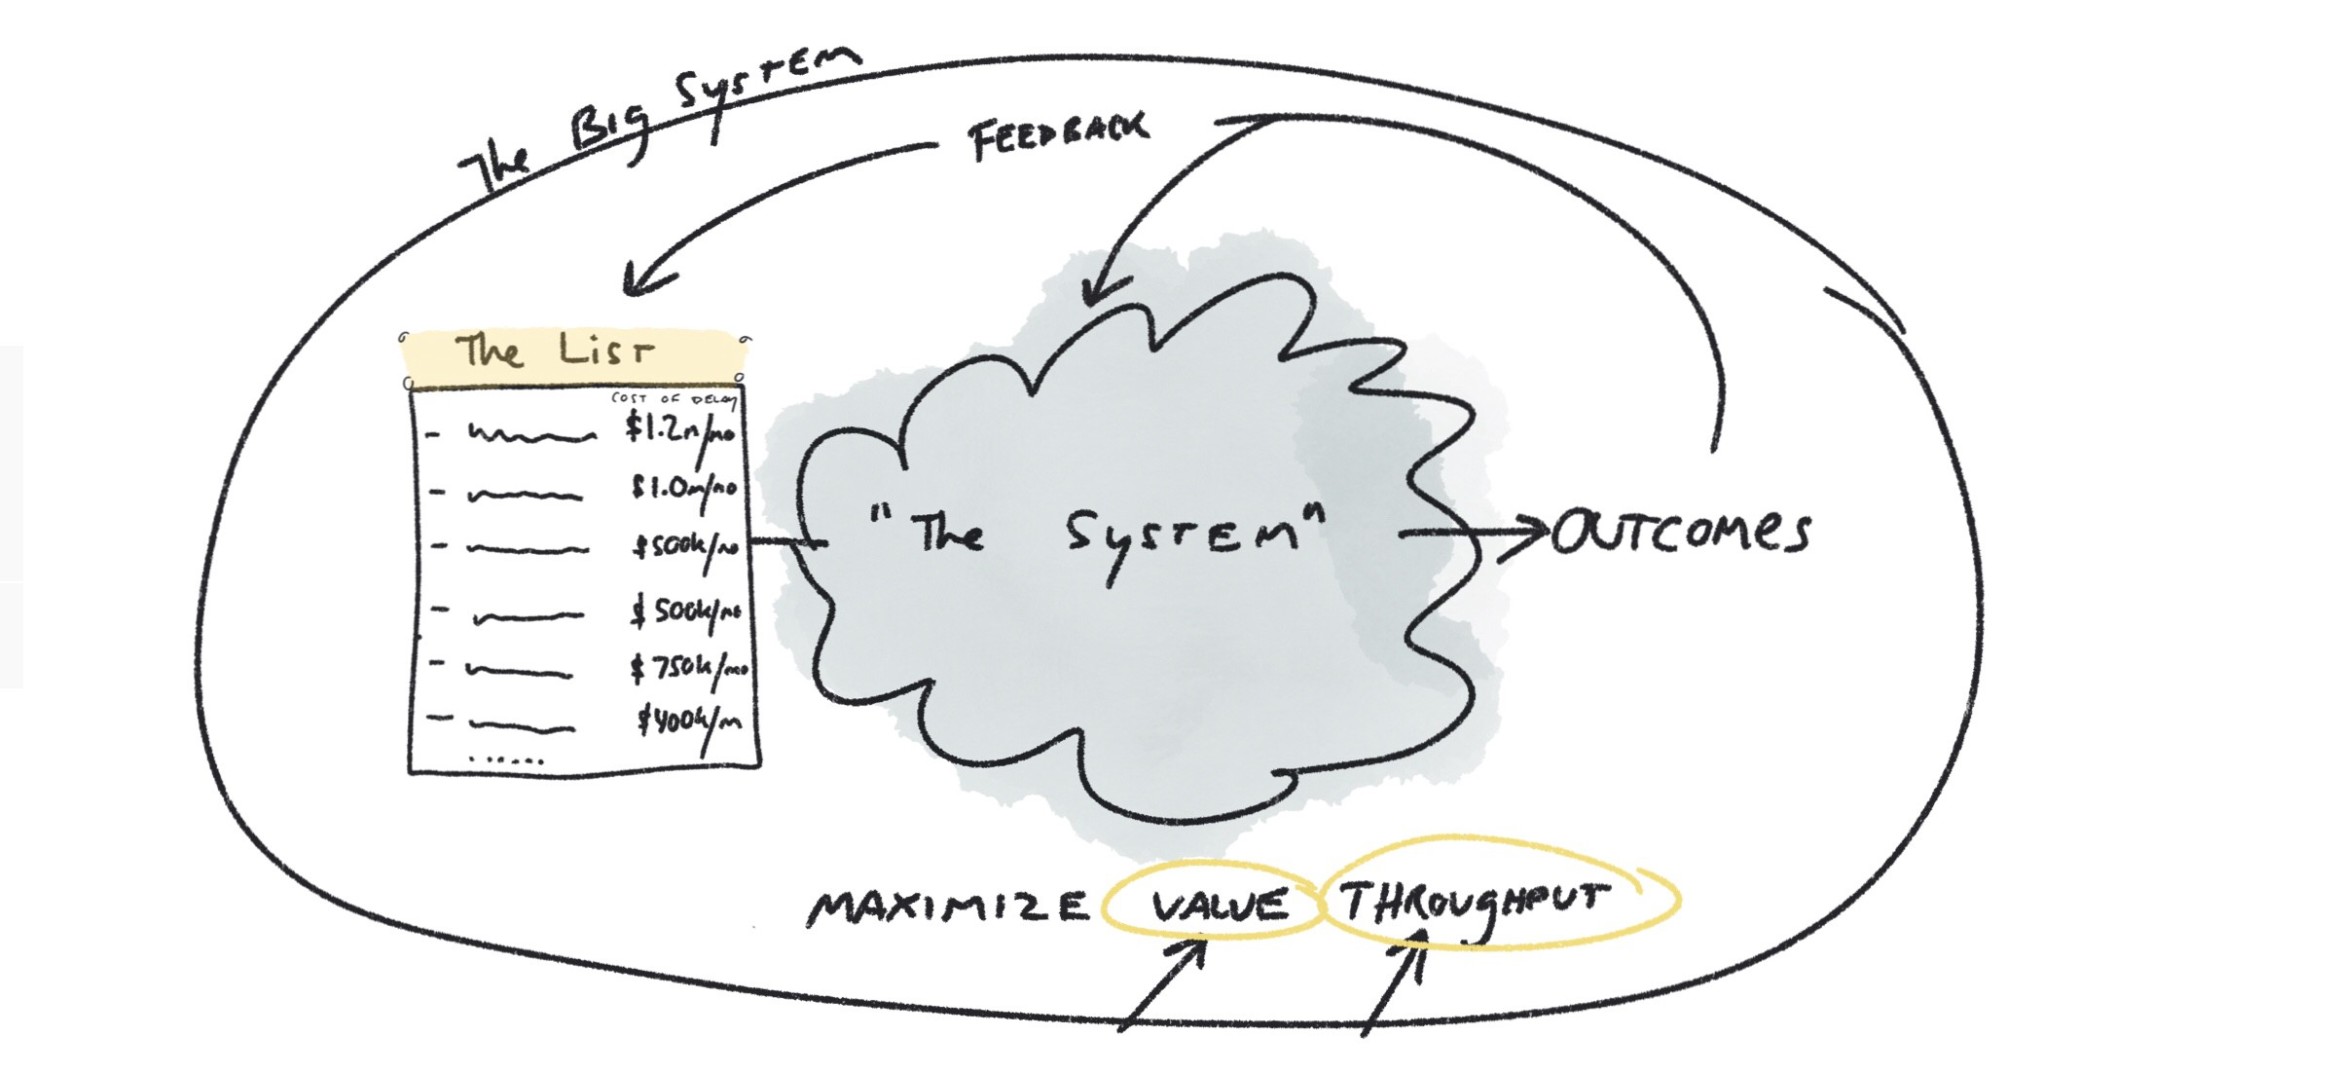 The Big System
FEEDBACK
The List
COST OF DELAY
- $1.2m/mo
- $1.0m/mo
- $500k/mo
- $500k/mo
- $750k/mo
- $400k/m
......
"The System"
OUTCOMES
MAXIMIZE VALUE THROUGHPUT